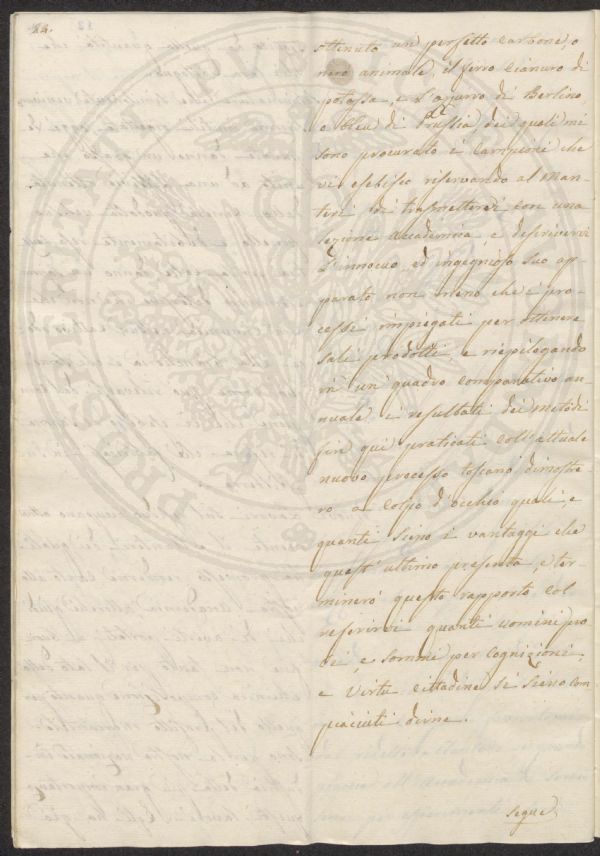 22.
ottenuto un perfetto carbone, o
nero animale, il ferro cianuro di
potassa, e l'azurro di Berlino
o bleu di Prussia dei quali mi
sono procurato i campioni che
vi esebisco riservando al Man-
tiri di trasmetterdi con una
lezione accademica, e descrivervi
l'innocuo, ed ingegnoso suo ap-
parato non meno che i pro-
cessi impiegati per ottenere
tali prodotti, e riepilogando
in un quadro comparativo an-
nuale i resultati dei metodi
fin qui praticati coll'attuale
nuovo processo toscano dimostre-
ro a colpo d'occhio quali, e
quanti sieno i vantaggi che
quest'ultimo presenta, e ter-
minerò questo rapporto col
referirvi quanti uomini pro
di, e sommi per cognizioni,
e virtù cittadine si sieno com
piaciuti dirne.
segue
PROSPERITATI PUBLICAE